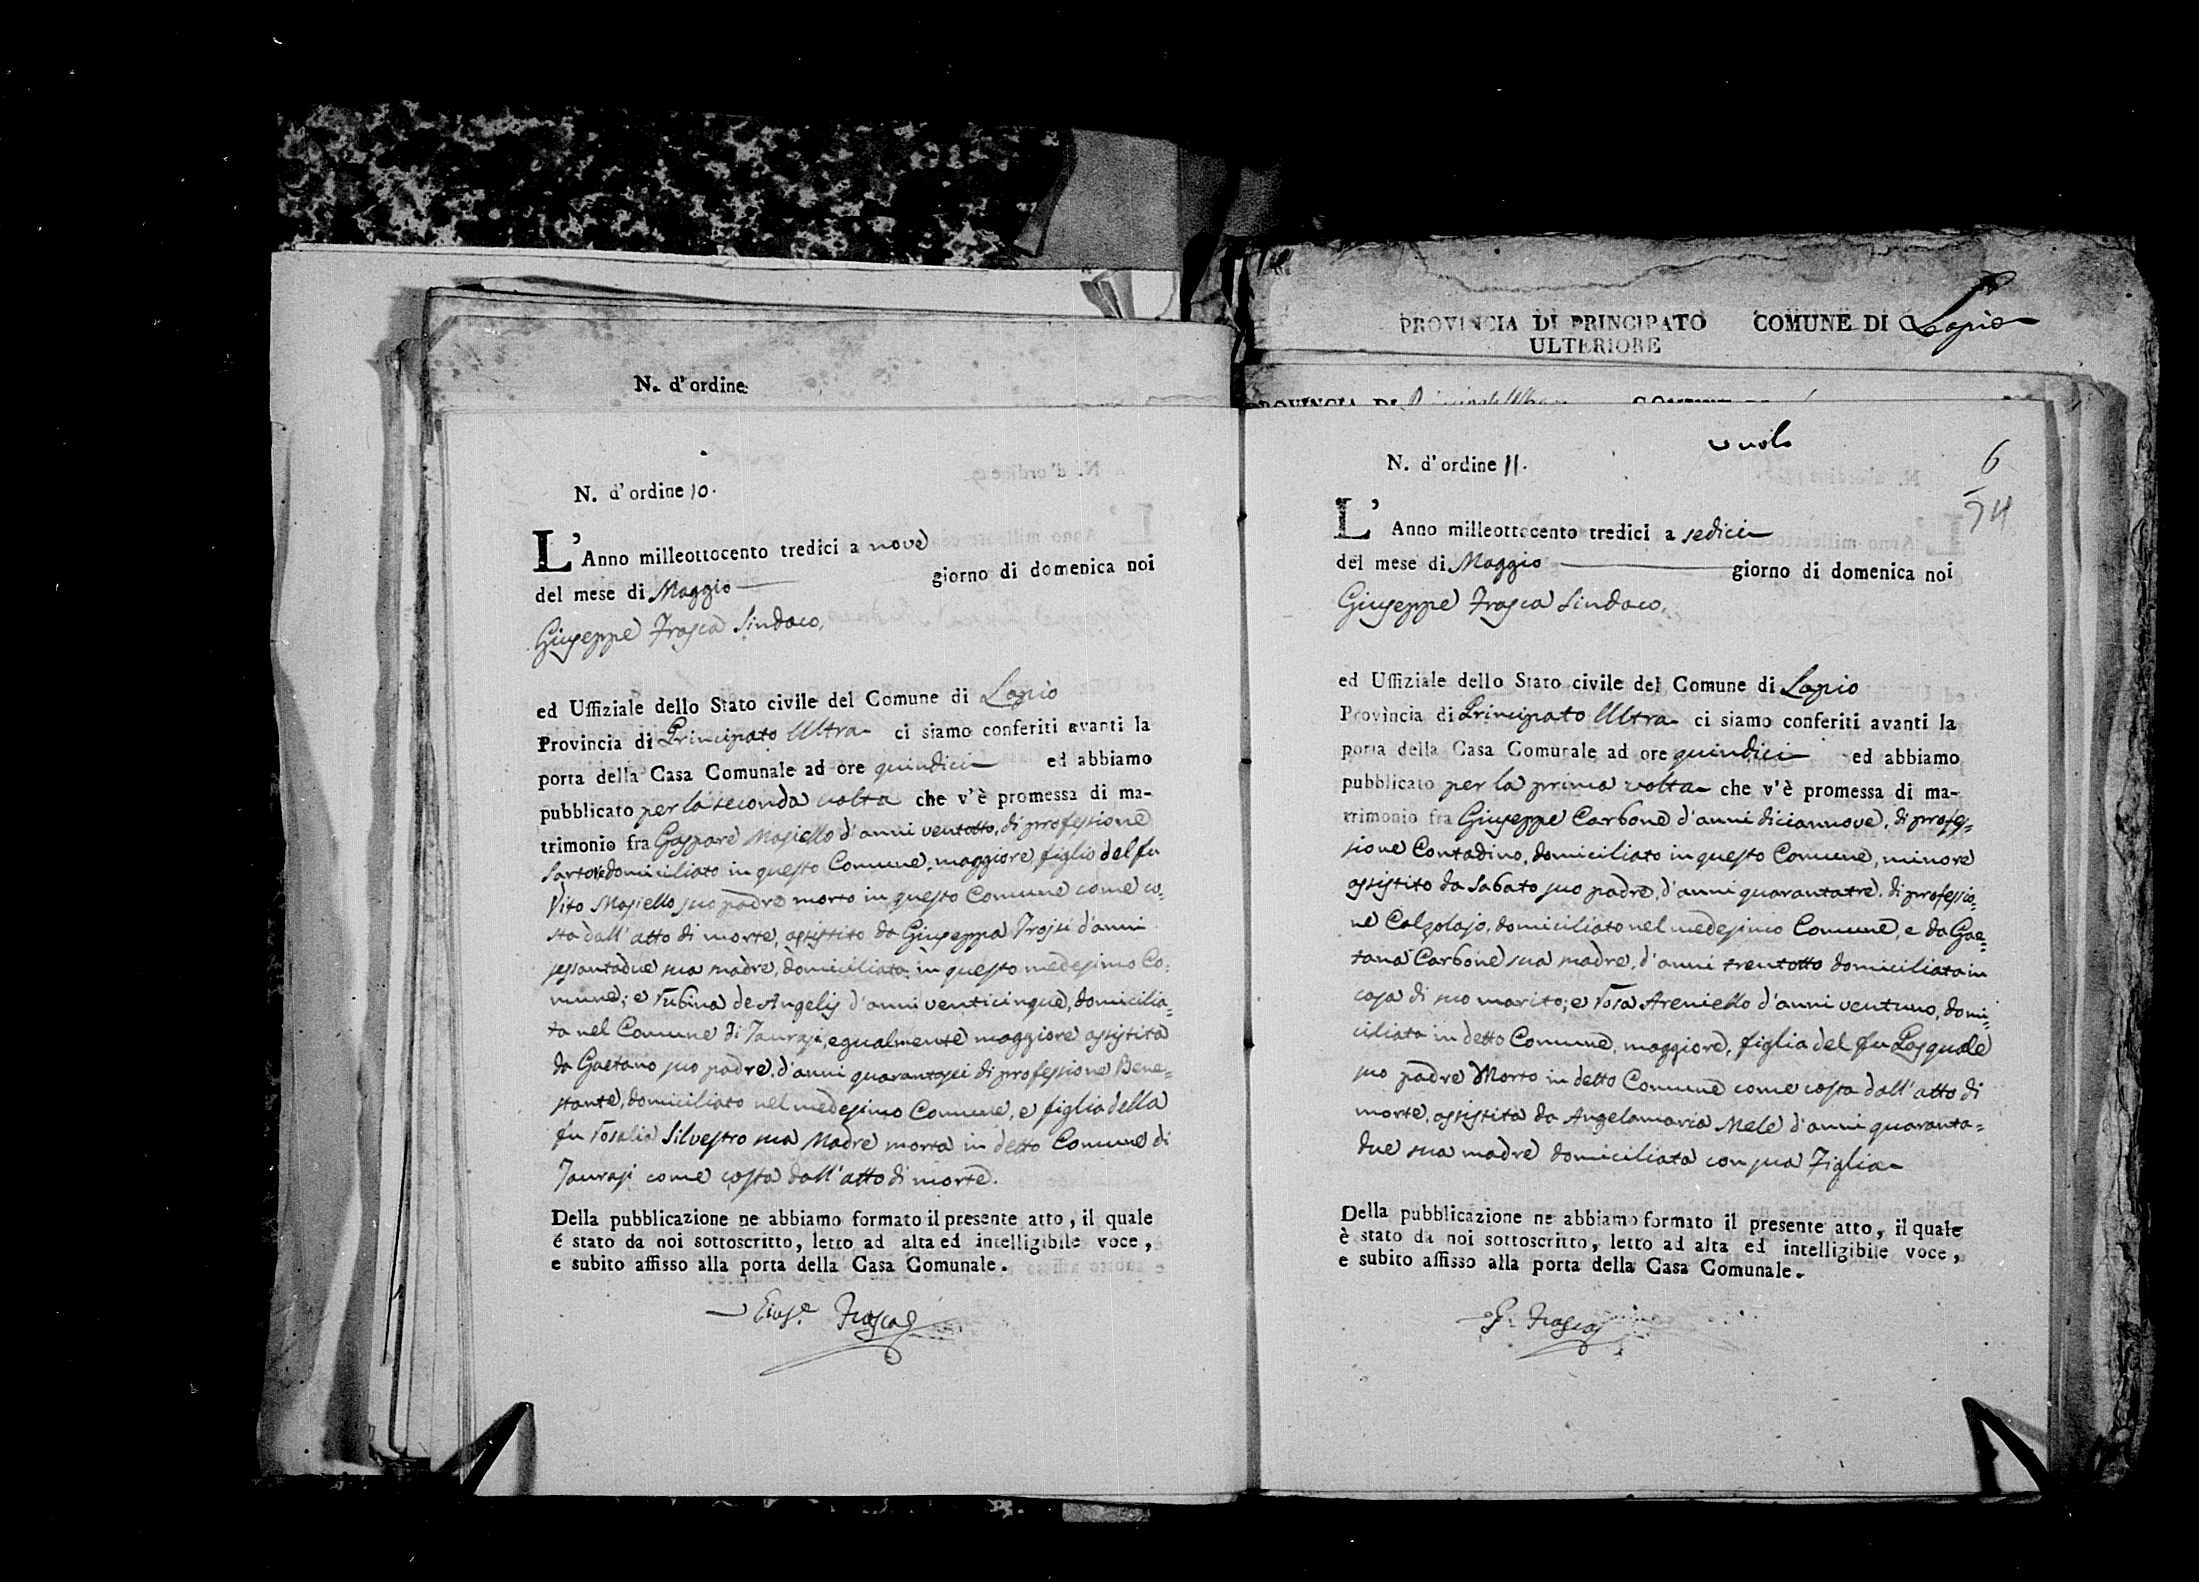 N. d'ordine
N. d'ordine 10.
L'Anno milleottocento tredici a nove
del mese di Maggio giorno di domenica noi
Giuseppe Frasca Sindaco,
ed Uffiziale dello Stato civile del Comune di Lapio
Provincia di Principato Ultra ci siamo conferiti avanti la
porta della Casa Comunale ad ore quindici ed abbiamo
pubblicato per la seconda volta che v'è promessa di ma-
trimonio fra Gaspare Masiello d'anni ventotto, di professione
Sartore domiciliato in questo Comune, maggiore, figlio del fu
Vito Masiello suo padre morto in questo Comune come co-
sta dall'atto di morte, assistito da Giuseppa Troisi d'anni
sessantadue sua madre, domiciliata in questo medesimo Co-
mune; e Rubina de Angelis d'anni venticinque, domicilia-
ta nel Comune di Taurasi, egualmente maggiore assistita
da Gaetano suo padre, d'anni quarantasei di professione Bene-
stante, domiciliato nel medesimo Comune, e figlia della
fu Rosalia Silvestro sua Madre morta in detto Comune di
Taurasi come costa dall'atto di morte.
Della pubblicazione ne abbiamo formato il presente atto, il quale
é stato da noi sottoscritto, letto ad alta ed intelligibile voce,
e subito affisso alla porta della Casa Comunale.
Gius.e Frasca
PROVINCIA DI PRINCIPATO COMUNE DI Lapio
ULTERIORE
PROVINCIA DI
6
74
N. d'ordine 11.
L'Anno milleottocento tredici a sedici
del mese di Maggio giorno di domenica noi
Giuseppe Frasca Sindaco,
ed Uffiziale dello Stato civile del Comune di Lapio
Provincia di Principato Ultra ci siamo conferiti avanti la
porta della Casa Comunale ad ore quindici ed abbiamo
pubblicato per la prima volta che v'è promessa di ma-
trimonio fra Giuseppe Carbone d'anni diciannove, di profes-
sione Contadino, domiciliato in questo Comune, minore
assistito da Sabato suo padre, d'anni quarantatre, di professio-
ne Calzolajo, domiciliato nel medesimo Comune, e da Gae-
tana Carbone sua madre, d'anni trentotto domiciliata in
casa di suo marito; e Rosa Areniello d'anni ventuno, domi-
ciliata in detto Comune, maggiore, figlia del fu Pasquale
suo padre Morto in detto Comune come costa dall'atto di
morte, assistita da Angelamaria Mele d'anni quaranta-
due sua madre domiciliata con sua Figlia
Della pubblicazione ne abbiamo formato il presente atto, il quale
è stato da noi sottoscritto, letto ad alta ed intelligibile voce,
e subito affisso alla porta della Casa Comunale.
G. Frasca